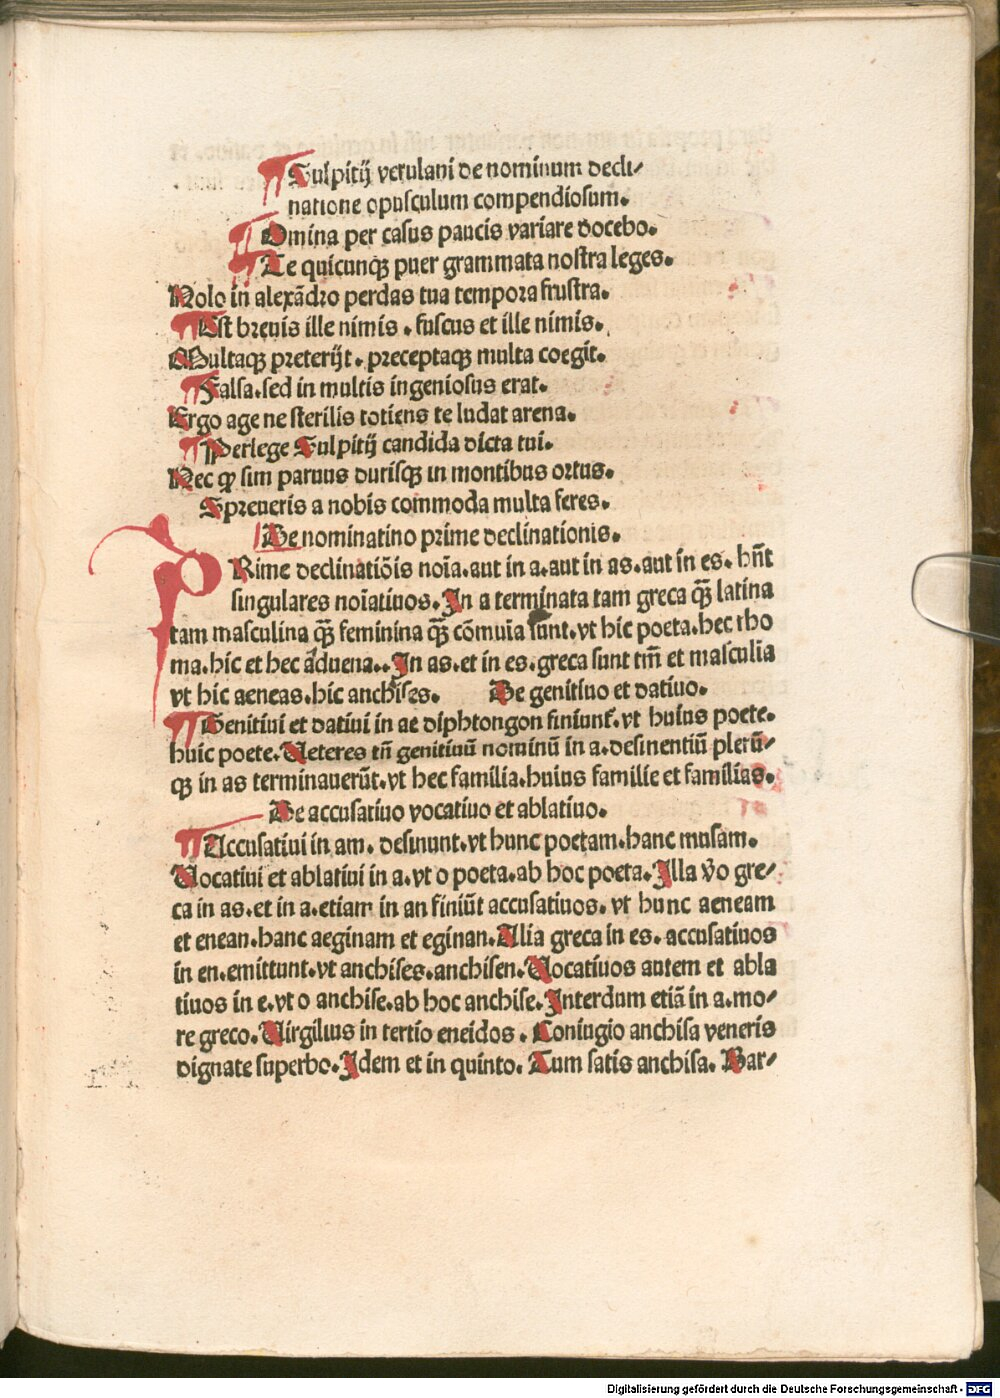 ¶ Sulpitij verulani de nominum decli⸗
natione opusculum compendiosum.
¶ Omina per casus paucis variare docebo.
¶ Te quicunqꝫ puer grammata nostra leges.
Nolo in alexãdro perdas tua tempora frustra.
¶ Est breuis ille nimis . fuscus et ille nimis.
Multaqꝫ preterijt . preceptaqꝫ multa coegit.
¶ Falsa.sed in multis ingeniosus erat.
Ergo age ne sterilis totiens te ludat arena.
¶ Perlege Sulpitij candida dicta tui.
Nec ꝙ sim paruus durisqꝫ in montibus ortus.
Spreueris a nobis commoda multa feres.
De nominatino prime declinationis.
PRime declinatiõis noĩa.aut in a.aut in as.aut in es. hñt
singulares noĩatiuos. In a terminata tam greca qꝫ̃ latina
tam masculina qꝫ̃ feminina qꝫ̃ cõmuĩa sunt.vt hic poeta.hec tho
ma.hic et hec aduena.. In as.et in es.greca sunt tm̃ et masculĩa
vt hic aeneas.hic anchises. De genitiuo et datiuo.
¶ Genitiui et datiui in ae diphtongon finiunt.vt huius poete.
huic poete. Ueteres tñ genitiuũ nominũ in a.desinentiũ plerũ⸗
qꝫ in as terminauerũt.vt hec familia.huius familie et familias.
De accusatiuo vocatiuo et ablatiuo.
¶ Accusatiui in am . desinunt.vt hunc poetam.hanc musam.
Uocatiui et ablatiui in a.vt o poeta.ab hoc poeta. Illa v̉o gre⸗
ca in as.et in a.etiam in an finiũt accusatiuos. vt hunc aeneam
et enean.hanc aeginam et eginan. Alia greca in es. accusatiuos
in en.emittunt.vt anchises.anchisen. Uocatiuos autem et abla
tiuos in e.vt o anchise.ab hoc anchise. Interdum etiã in a.mo⸗
re greco. Uirgilius in tertio eneidos . Coniugio anchisa veneris
dignate superbo. Idem et in quinto. Tum satis anchisa. Bar⸗
Digitalisierung gefördert durch die Deutsche Forschungsgemeinschaft - DFG